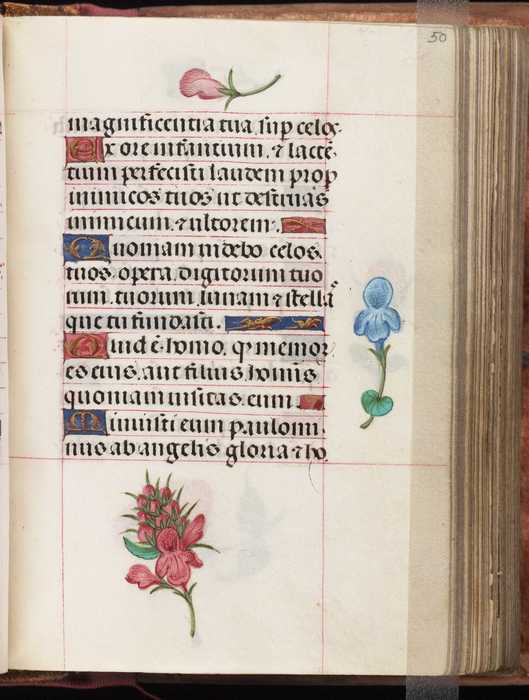 50
magnificentia tua, sup celos.
Ex ore infantium, ⁊ lactē
tium perfecisti laudem propꝭ
inimicos tuos ut destruas
inimicum, ⁊ ultorem.
Quoniam uidebo celos
tuos, opera digitorum tuo
rum, tuorum, lunam ⁊ stellaˢ
que tu fundasti.
Quid ē homo, qꝫ memor
es eius, aut filius hominis
quoniam uisitas eum.
Minuisti eum paulomi
nus ab angelis gloria ⁊ ho